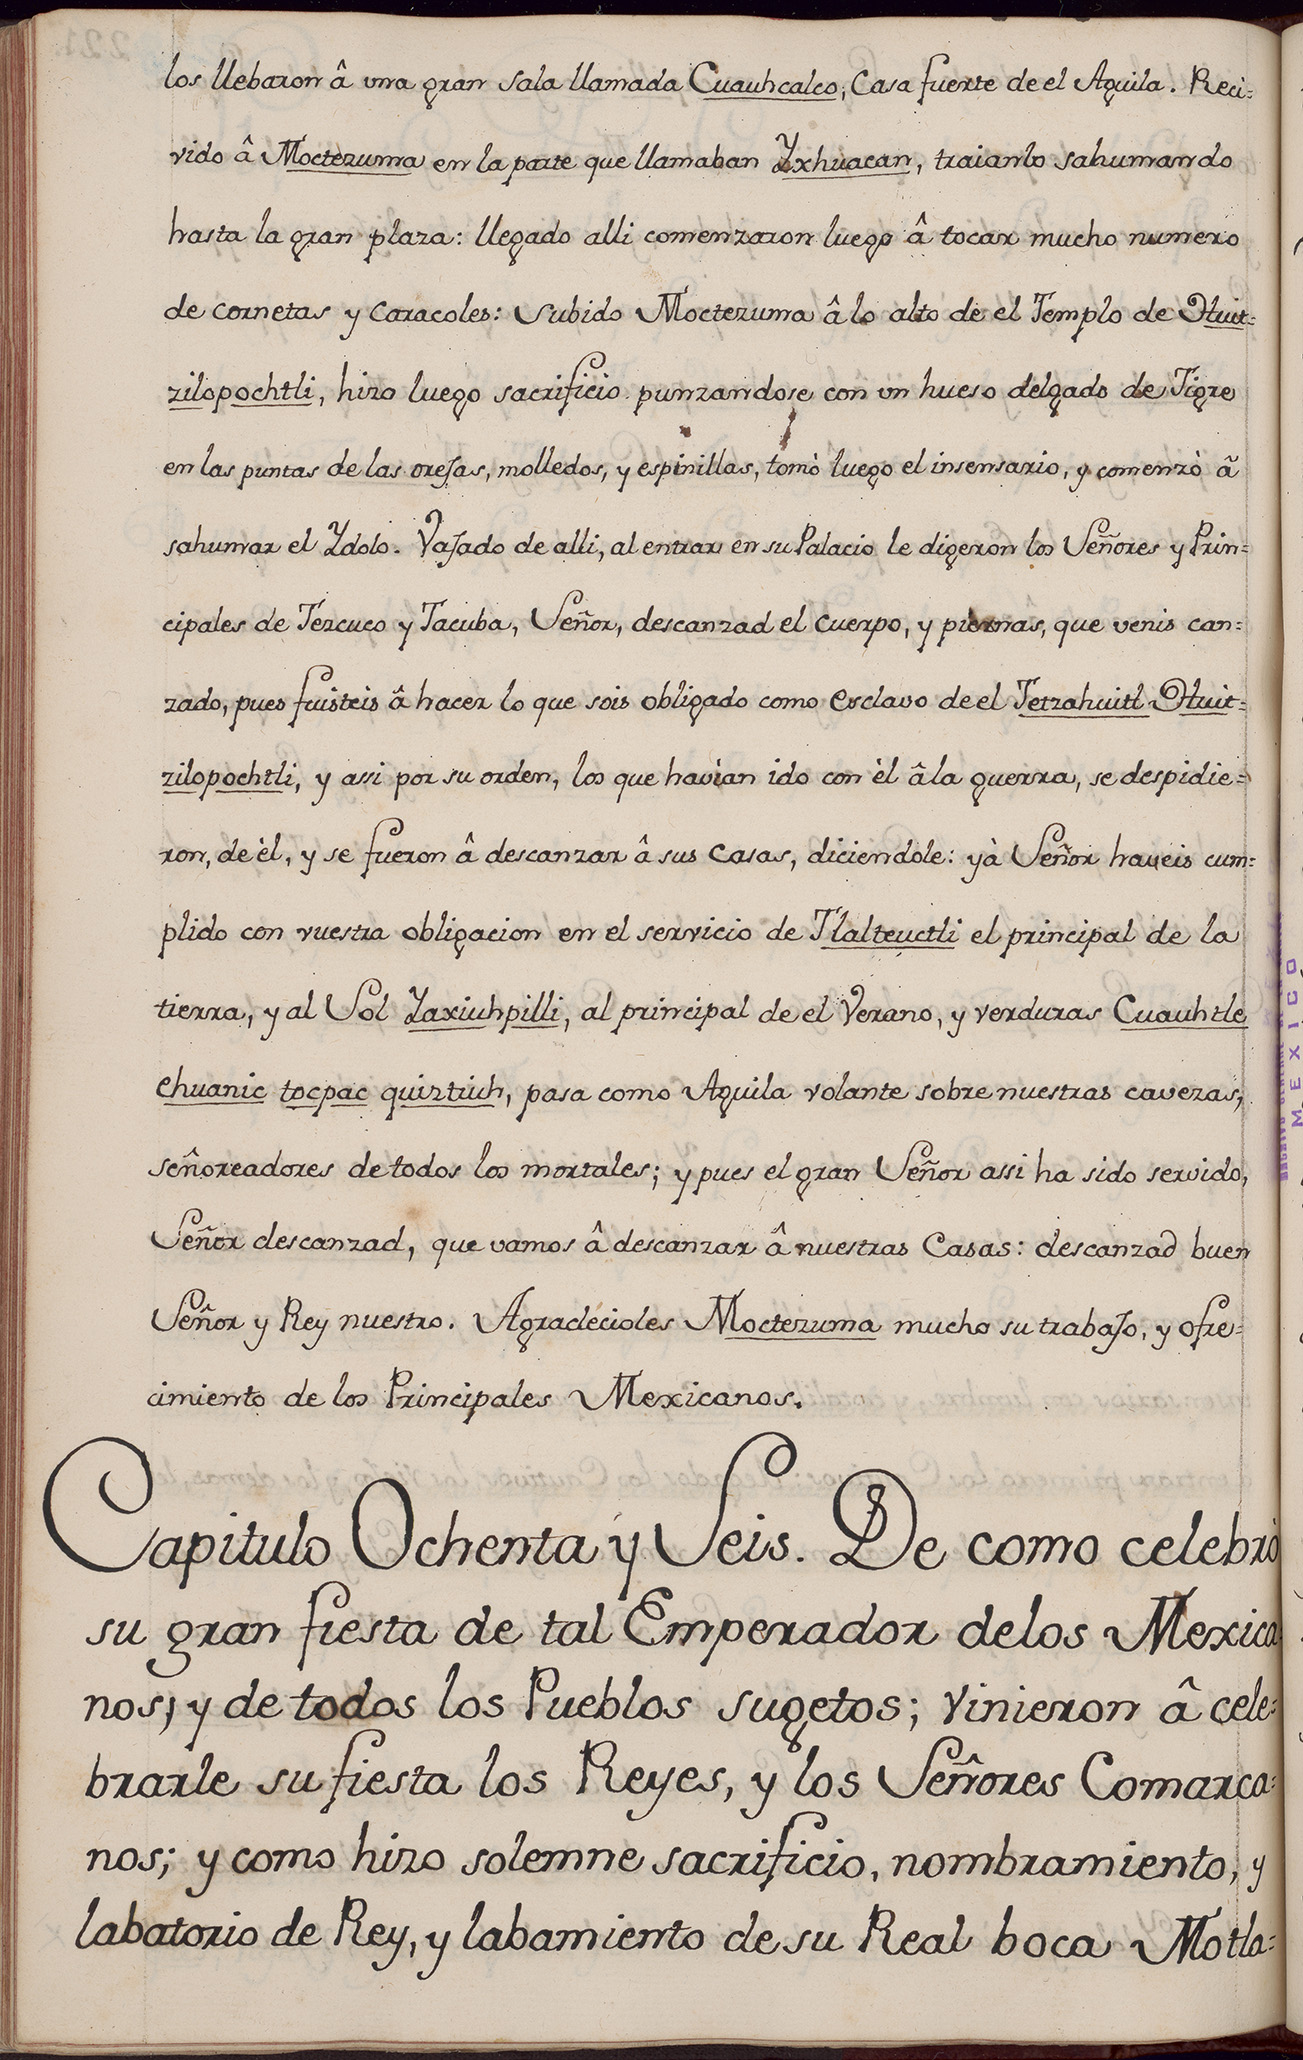 los llebaron â una gran Sala llamada Cuauhcalco, Casa fuerte de el Aguila. Reci=
vido â Moctezuma en la parte que llamaban Yxhuacan, traianlo sahumando
hasta la gran plaza: llegado alli comenzaron luego â tocar mucho numero
de cornetas y Caracoles: Subido Moctezuma â lo alto de el Templo de Huit=
zilopochtli, hizo luego sacrificio punzandose con un hueso delgado de Tigre
en las puntas de las orejas, molledos, y espinillas, tomò luego el insensario, y comenzò â
sahumar el Ydolo. Vajado de alli, al entrar en su Palacio le digeron los Señores y Prin=
cipales de Tezcuco y Tacuba, Señor, descanzad el Cuerpo, y piernas, que venis can=
zado, pues fuisteis â hacer lo que sois obligado como esclavo de el Tetzahuitl Huit=
zilopochtli, y assi por su orden, los que havian ido con èl â la guerra, se despidie=
ron, de èl, y se fueron â descanzar â sus Casas, diciendole: yà Señor haveis cum=
plido con vuestra obligacion en el servicio de Tlalteuctli el principal de la
tierra, y al Sol Yaxiuhpilli, al principal de el Verano, y verduras Cuauhtle
ehuanic tocpac quiztiuh, pasa como Aguila volante sobre nuestras cavezas,
señoreadores de todos los mortales; y pues el gran Señor assi ha sido servido,
Señor descanzad, que vamos â descanzar â nuestras Casas: descanzad buen
Señor y Rey nuestro. Agradecioles Moctezuma mucho su trabajo, y ofre=
cimiento de los Principales Mexicanos.
Capitulo Ochenta y Seis. De como celebrò
su gran fiesta de tal Emperador delos Mexica
nos, y de todos los Pueblos sugetos; vinieron â cele=
brarle su fiesta los Reyes, y los Señores Comarca=
nos; y como hizo solemne sacrificio, nombramiento, y
labatorio de Rey, y labamiento de su Real boca Motla=
MEXICO